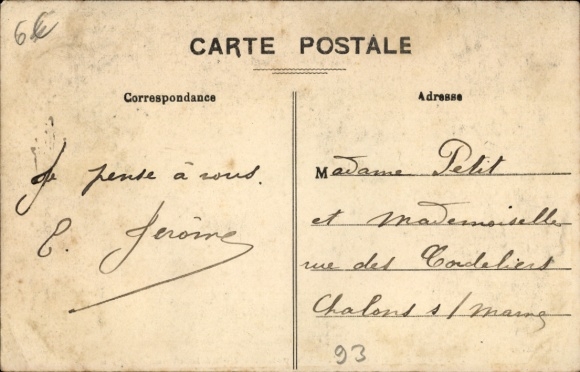 6€
CARTE POSTALE
Correspondance
Adresse
Je pense à vous.
C. Jerôme
Madame Petit
et Mademoiselle
rue des Cordeliers
Chalons s/Marne
93